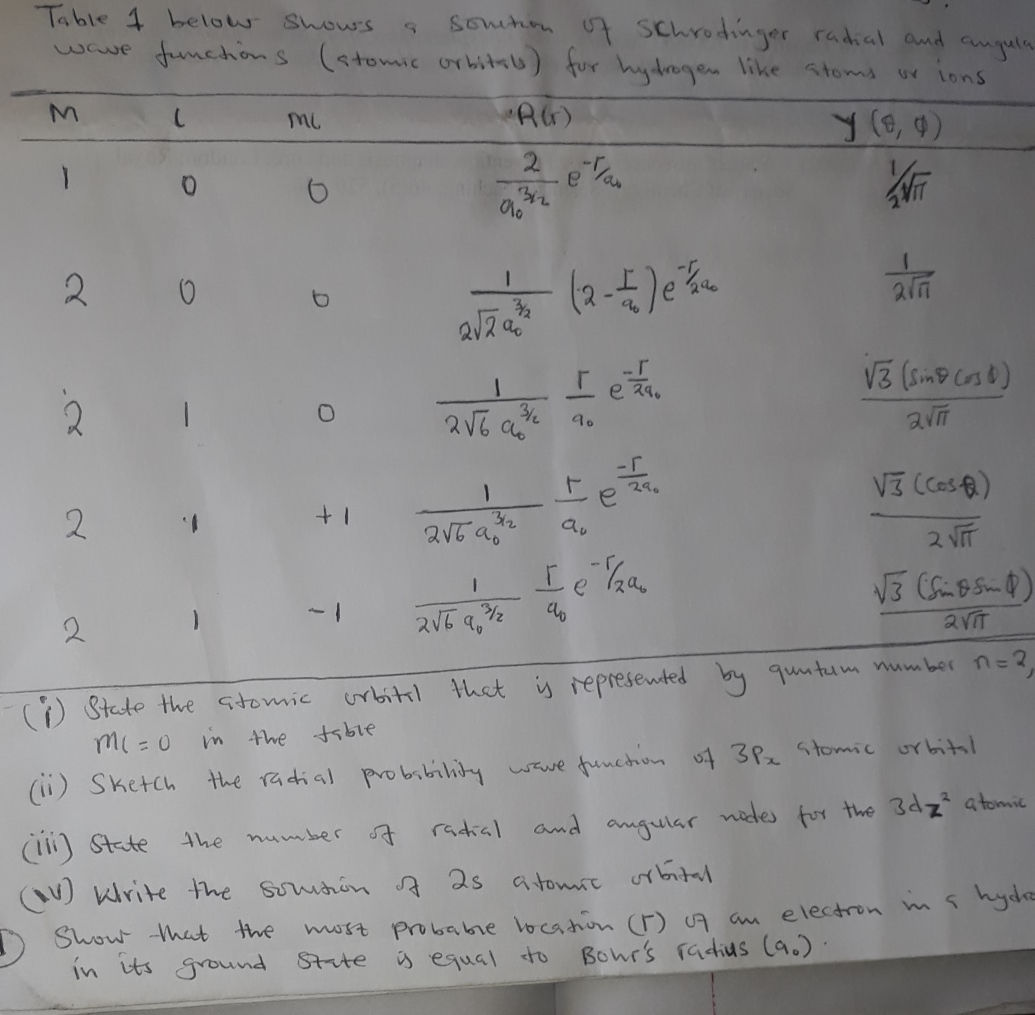 Table 1 below shows a solution of Schrodinger radial and angula
wave functions (atomic orbitals) for hydrogen like atoms or ions
n l ml R(r) y (θ, φ)
1 0 0 2/a₀^3/2 e^-r/a₀ 1/2√π
2 0 0 1/2√2 a₀^3/2 (2 - r/a₀) e^-r/2a₀ 1/2√π
2 1 0 1/2√6 a₀^3/2 r/a₀ e^-r/2a₀ √3 (sinθ cosφ)/2√π
2 1 +1 1/2√6 a₀^3/2 r/a₀ e^-r/2a₀ √3 (cosθ)/2√π
2 1 -1 1/2√6 a₀^3/2 r/a₀ e^-r/2a₀ √3 (sinθ sinφ)/2√π
(i) State the atomic orbital that is represented by quntum number n=2,
ml = 0 in the table
(ii) Sketch the radial probability wave function of 3Px atomic orbital
(iii) State the number of radial and angular nodes for the 3dz² atomic
(iv) Write the solution of 2s atomic orbital
Show that the most probable location (r) of an electron in a hydro
in its ground state is equal to Bohr's radius (a₀).